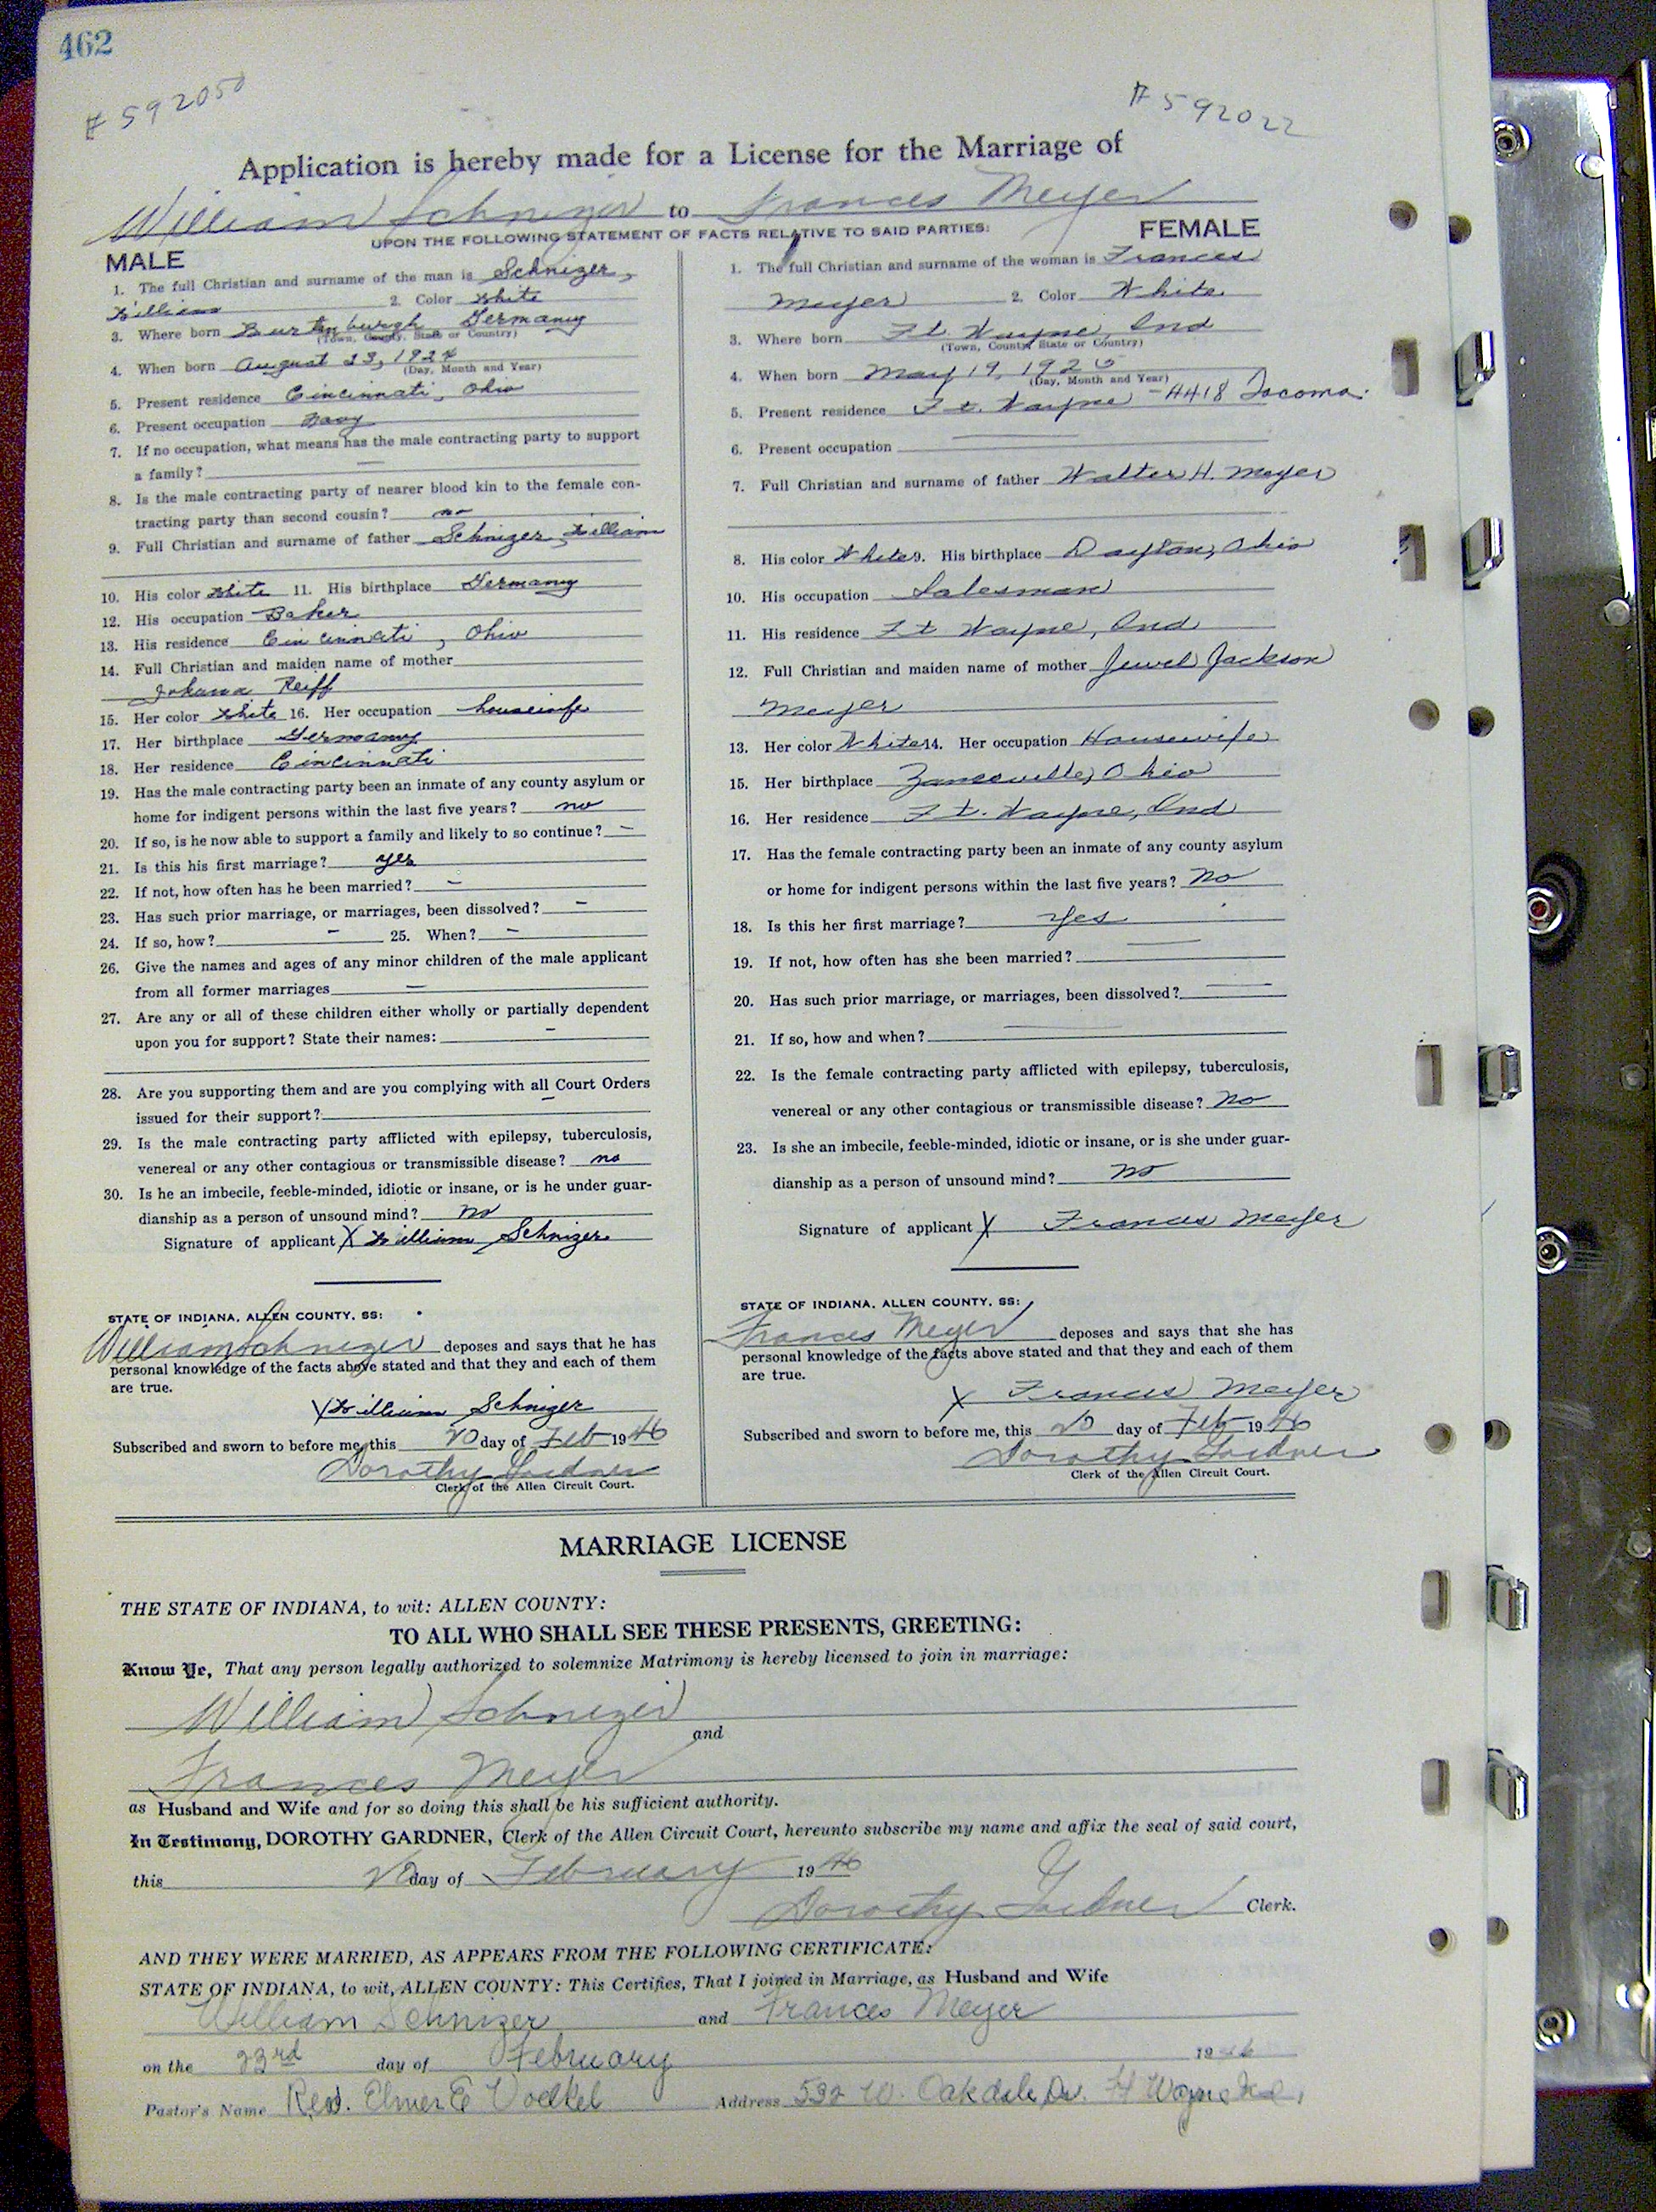 462
# 592050
# 592022
Application is hereby made for a License for the Marriage of
William Schnizer to Frances Meyer
UPON THE FOLLOWING STATEMENT OF FACTS RELATIVE TO SAID PARTIES:
MALE
1. The full Christian and surname of the man is Schnizer,
William 2. Color White
3. Where born Burtenburgh Germany
(Town, County, State or Country)
4. When born August 23, 1924
(Day, Month and Year)
5. Present residence Cincinnati, Ohio
6. Present occupation Navy
7. If no occupation, what means has the male contracting party to support
a family? —
8. Is the male contracting party of nearer blood kin to the female con-
tracting party than second cousin? no
9. Full Christian and surname of father Schnizer, William
10. His color White 11. His birthplace Germany
12. His occupation Baker
13. His residence Cincinnati, Ohio
14. Full Christian and maiden name of mother
Johana Reiff
15. Her color White 16. Her occupation housewife
17. Her birthplace Germany
18. Her residence Cincinnati
19. Has the male contracting party been an inmate of any county asylum or
home for indigent persons within the last five years? no
20. If so, is he now able to support a family and likely to so continue? —
21. Is this his first marriage? yes
22. If not, how often has he been married? —
23. Has such prior marriage, or marriages, been dissolved? —
24. If so, how? — 25. When? —
26. Give the names and ages of any minor children of the male applicant
from all former marriages —
27. Are any or all of these children either wholly or partially dependent
upon you for support? State their names: —
28. Are you supporting them and are you complying with all Court Orders
issued for their support? —
29. Is the male contracting party afflicted with epilepsy, tuberculosis,
venereal or any other contagious or transmissible disease? no
30. Is he an imbecile, feeble-minded, idiotic or insane, or is he under guar-
dianship as a person of unsound mind? no
Signature of applicant X William Schnizer
STATE OF INDIANA, ALLEN COUNTY, SS:
William Schnizer deposes and says that he has
personal knowledge of the facts above stated and that they and each of them
are true.
X William Schnizer
Subscribed and sworn to before me, this 20 day of Feb 1946
Dorothy Gardner
Clerk of the Allen Circuit Court.
FEMALE
1. The full Christian and surname of the woman is Frances
Meyer 2. Color White
3. Where born Ft. Wayne, Ind
(Town, County, State or Country)
4. When born May 19, 1926
(Day, Month and Year)
5. Present residence Ft. Wayne - 4418 Tacoma.
6. Present occupation —
7. Full Christian and surname of father Walter H. Meyer
8. His color White 9. His birthplace Dayton, Ohio
10. His occupation Salesman
11. His residence Ft Wayne, Ind
12. Full Christian and maiden name of mother Jewel Jackson
Meyer
13. Her color White 14. Her occupation Housewife
15. Her birthplace Zanesville, Ohio
16. Her residence Ft. Wayne, Ind
17. Has the female contracting party been an inmate of any county asylum
or home for indigent persons within the last five years? No
18. Is this her first marriage? Yes
19. If not, how often has she been married? —
20. Has such prior marriage, or marriages, been dissolved? —
21. If so, how and when? —
22. Is the female contracting party afflicted with epilepsy, tuberculosis,
venereal or any other contagious or transmissible disease? No
23. Is she an imbecile, feeble-minded, idiotic or insane, or is she under guar-
dianship as a person of unsound mind? No
Signature of applicant X Frances Meyer
STATE OF INDIANA, ALLEN COUNTY, SS:
Frances Meyer deposes and says that she has
personal knowledge of the facts above stated and that they and each of them
are true.
X Frances Meyer
Subscribed and sworn to before me, this 20 day of Feb 1946
Dorothy Gardner
Clerk of the Allen Circuit Court.
MARRIAGE LICENSE
THE STATE OF INDIANA, to wit: ALLEN COUNTY:
TO ALL WHO SHALL SEE THESE PRESENTS, GREETING:
Know Ye, That any person legally authorized to solemnize Matrimony is hereby licensed to join in marriage:
William Schnizer
and
Frances Meyer
as Husband and Wife and for so doing this shall be his sufficient authority.
In Testimony, DOROTHY GARDNER, Clerk of the Allen Circuit Court, hereunto subscribe my name and affix the seal of said court,
this 20 day of February 1946
Dorothy Gardner Clerk.
AND THEY WERE MARRIED, AS APPEARS FROM THE FOLLOWING CERTIFICATE:
STATE OF INDIANA, to wit, ALLEN COUNTY: This Certifies, That I joined in Marriage, as Husband and Wife
William Schnizer and Frances Meyer
on the 23rd day of February 1946
Pastor's Name Rev. Elmer E Voelkel Address 532 W. Oakdale Dr. Ft Wayne Ind.